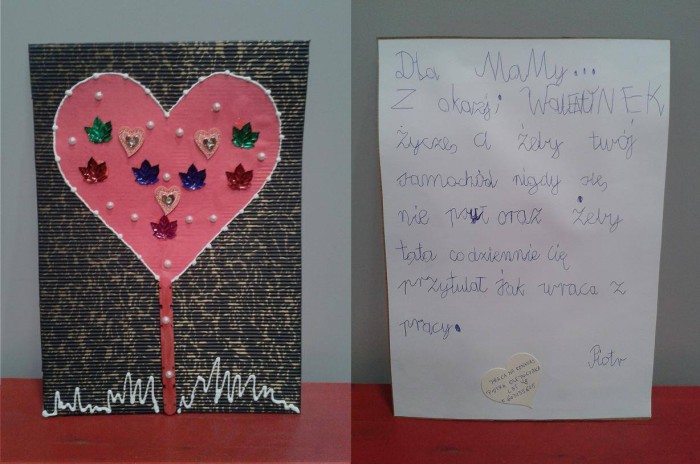 Dla MaMy...
Z okazji WALENTYNEK
życzę Ci żeby twój
samochód nigdy się
nie psuł oraz żeby
tata codziennie Cię
przytulał jak wraca z
pracy.
Piotr